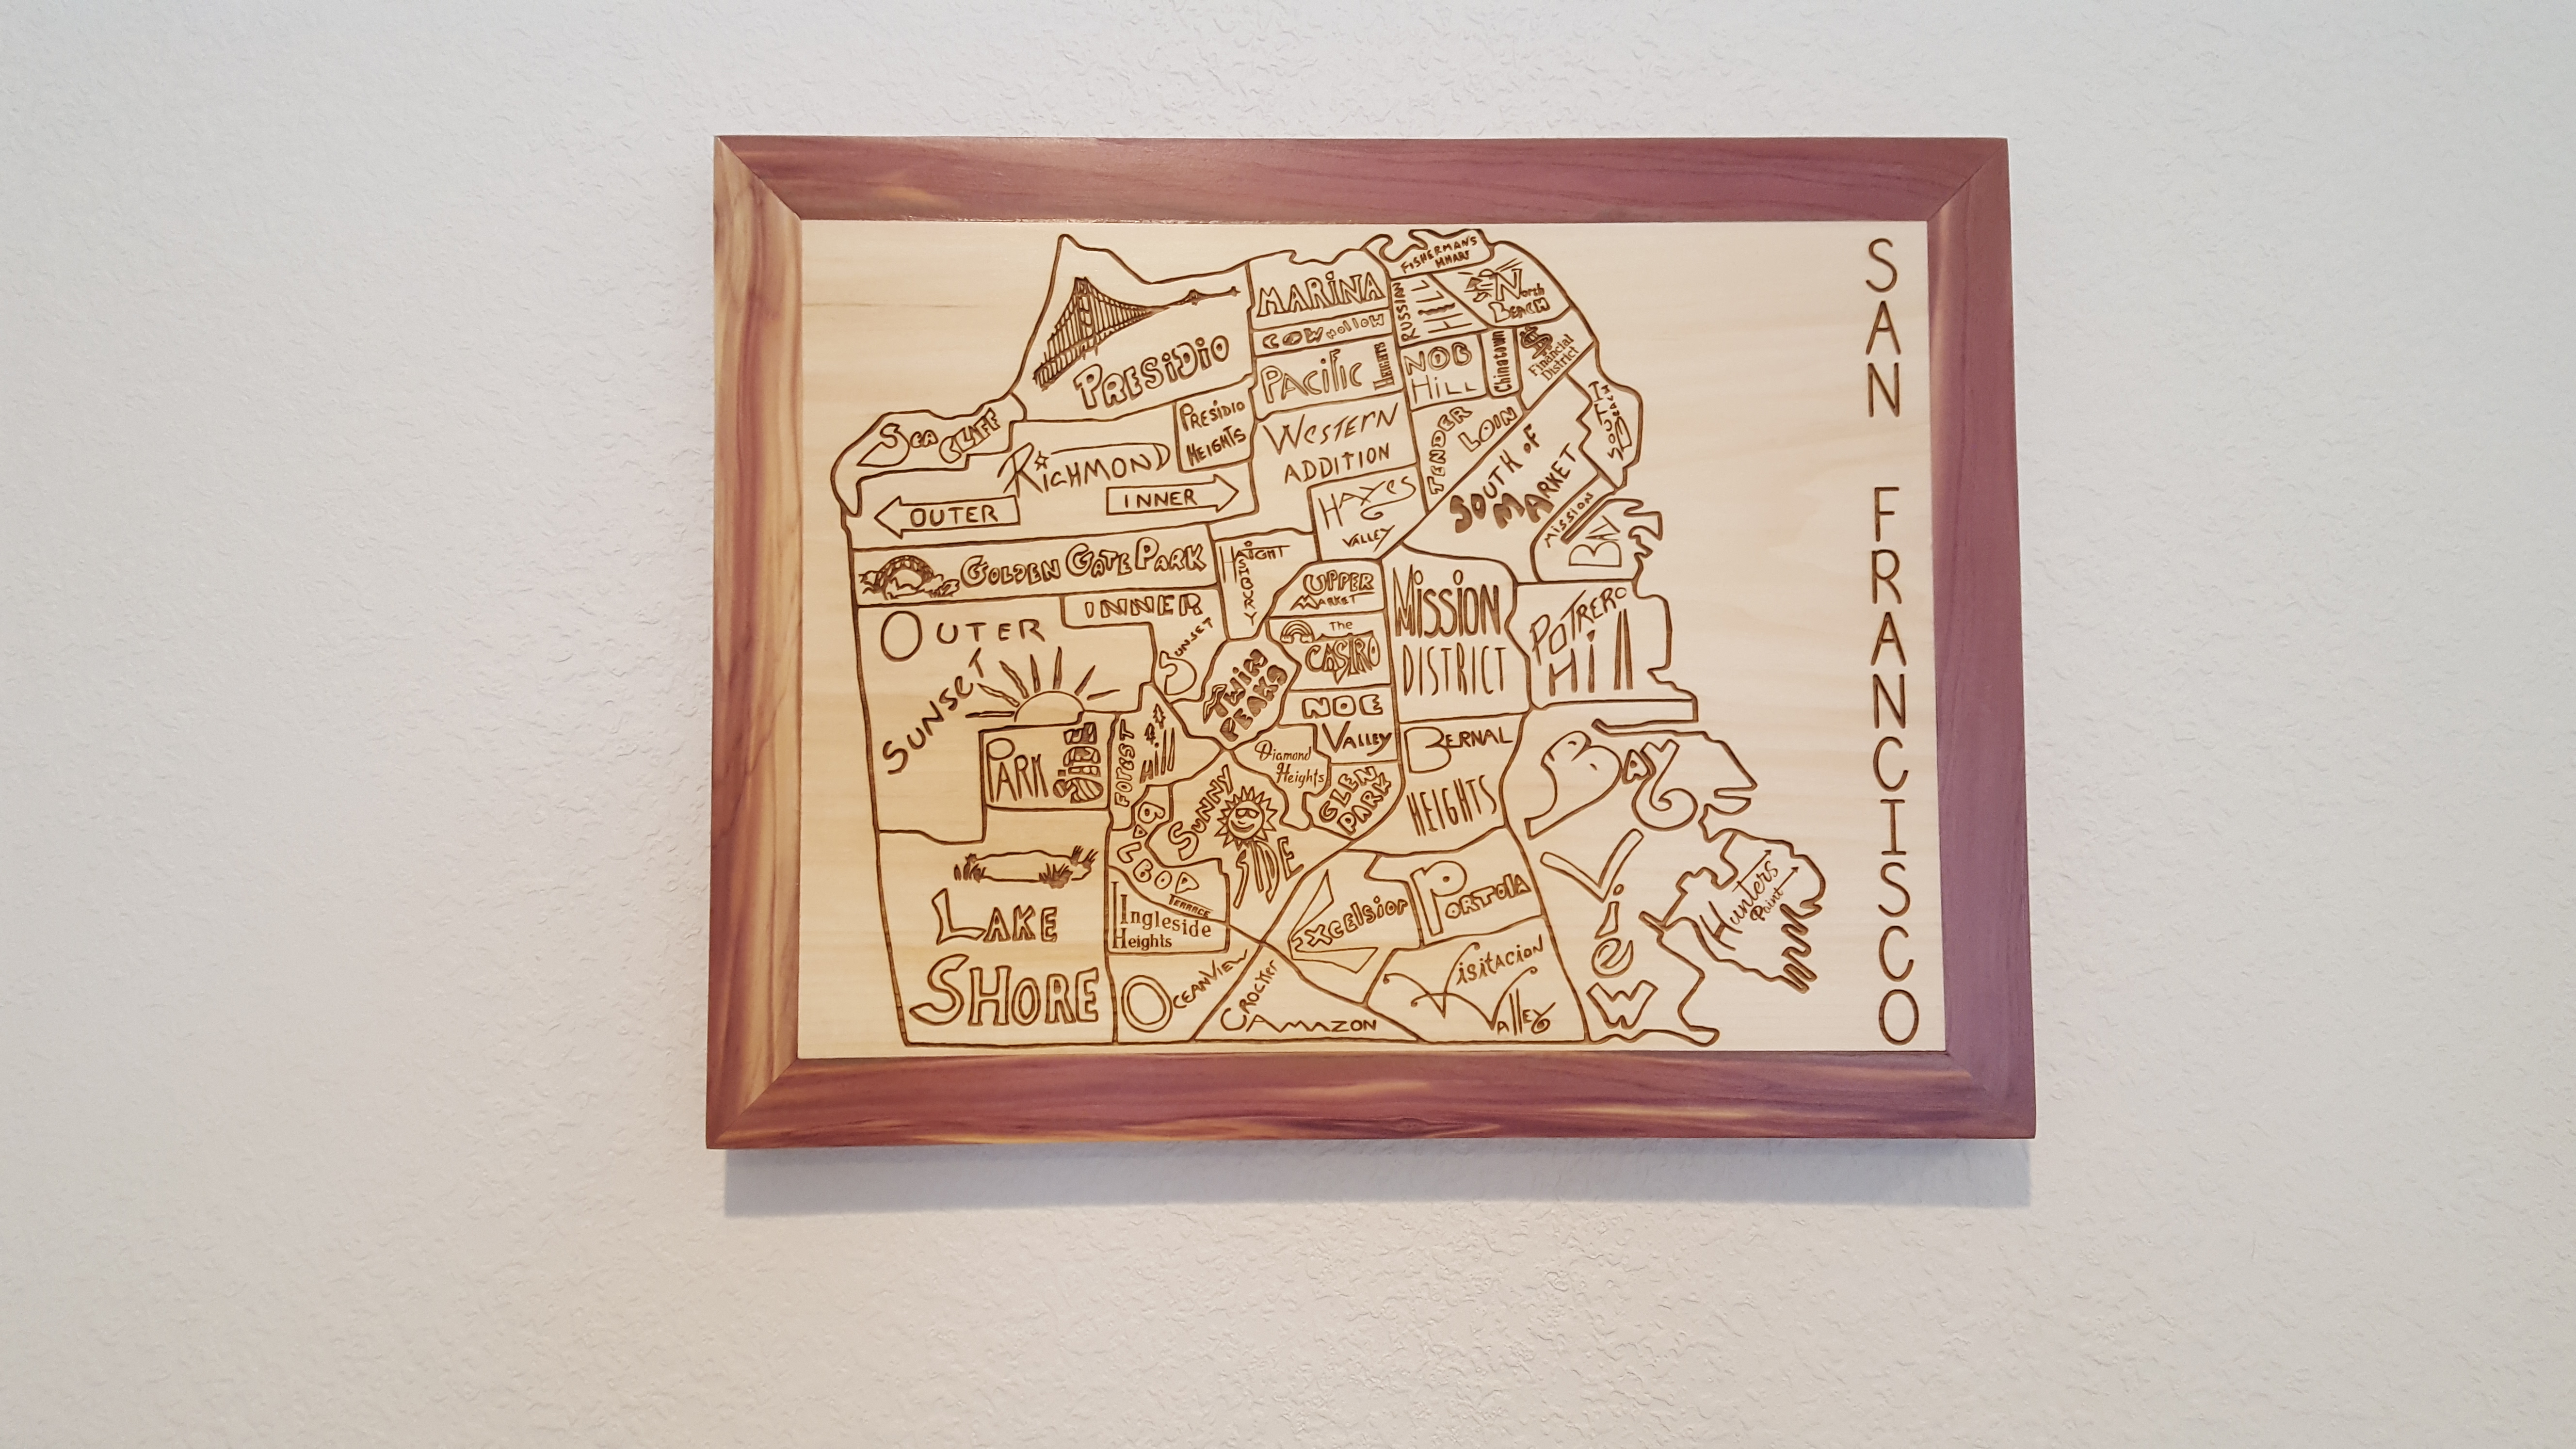 SAN FRANCISCO
FISHERMAN'S
WHARF
MARiNA
RUSSIAN
HILL
North
BEACH
COW HOllOW
PRESiDiO
PACiFiC
HEIGHTS
NOB
HiLL
Chinatown
$
Financial
District
SOUTH
BEACH
SEA
CLIFF
PRESIDIO
HEIGHTS
WESTERN
ADDITION
TENDER
LOIN
RICHMOND
OUTER
INNER
HAYES
VALLEY
SOUTH OF
MARKET
MISSION
BAY
GOLDEN GATE PARK
HAIGHT
ASHBURY
UPPER
MARKET
MISSION
DISTRICT
POTRERO
Hill
OUTER
SUNSET
INNER
SUNSET
The
CASTRO
TWIN
PEAKS
NOE
VALLEY
PARK
SIDE
FOREST
Hill
Diamond
Heights
GLEN
PARK
BERNAL
HEIGHTS
BAY
ViEW
SUNNY
SIDE
BALBOA
TERRACE
LAKE
SHORE
Ingleside
Heights
EXCElsior
PORTOlA
Hunters
Point
OCEANVIEW
CROCKER
AMAZON
VISITACION
VAllEY